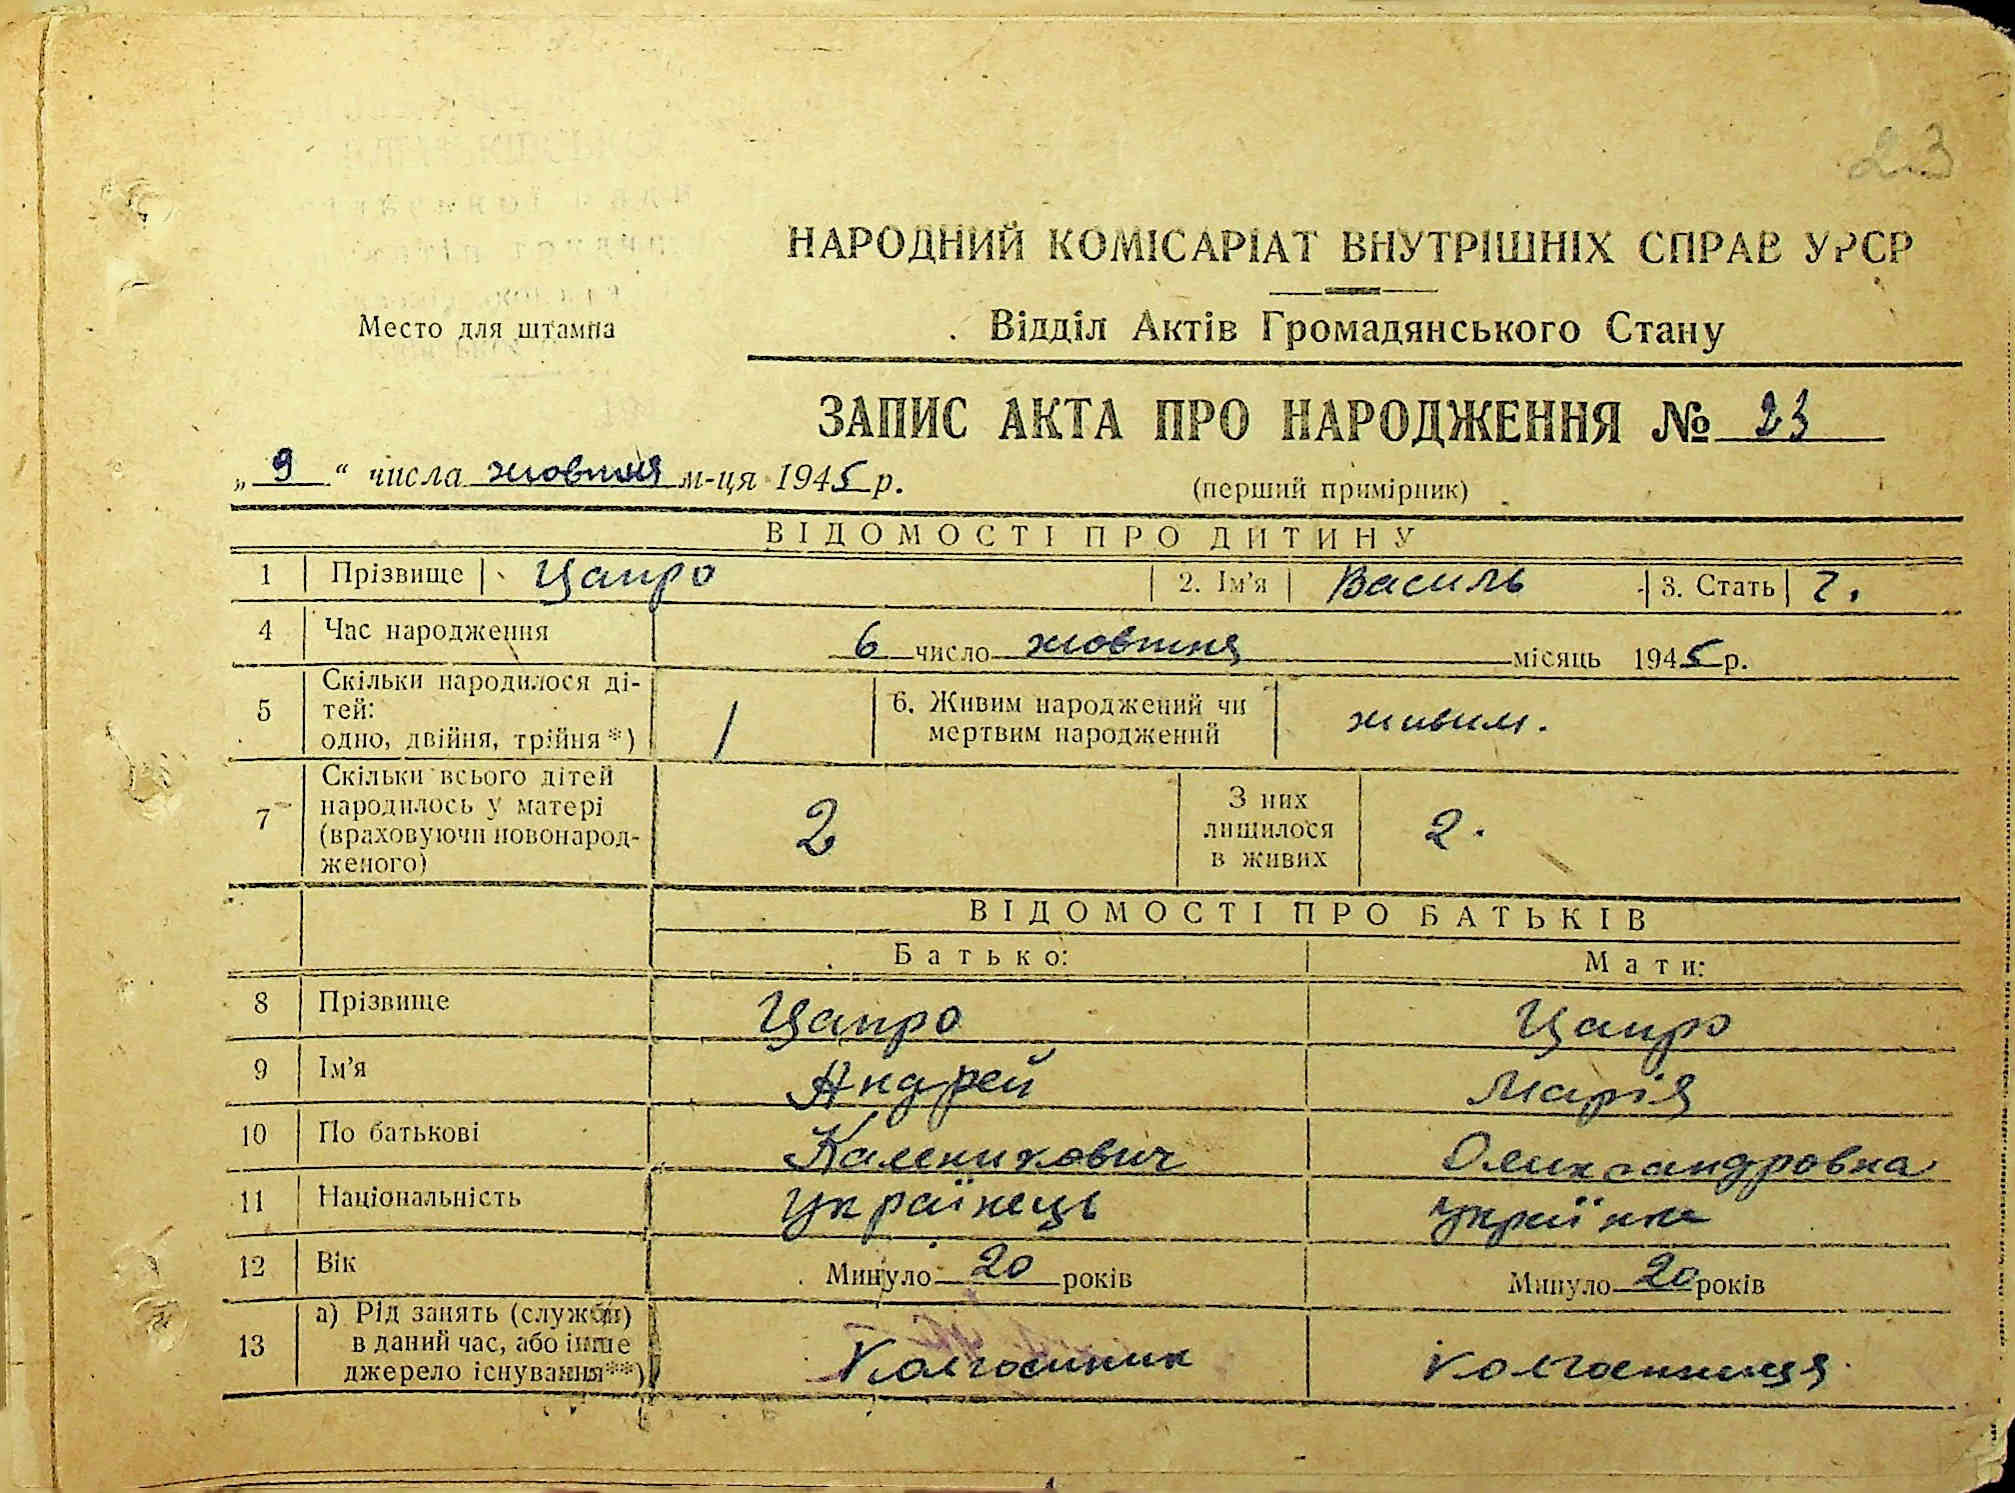 23
НАРОДНИЙ КОМІСАРІАТ ВНУТРІШНІХ СПРАВ УРСР
Место для штампа
Відділ Актів Громадянського Стану
ЗАПИС АКТА ПРО НАРОДЖЕННЯ № 23
„ 9 “ числа жовтня м-ця 1945 р.
(перший примірник)
ВІДОМОСТІ ПРО ДИТИНУ
1 Прізвище Цапро 2. Ім'я Василь 3. Стать ч.
4 Час народження 6 число жовтня місяць 1945 р.
5 Скільки народилося ді-
тей:
одно, двійня, трійня*) 1 6. Живим народжений чи
мертвим народжений живим.
7 Скільки всього дітей
народилось у матері
(враховуючи новонарод-
женого) 2 З них
лишилося
в живих 2.
ВІДОМОСТІ ПРО БАТЬКІВ
Батько: Мати:
8 Прізвище Цапро Цапро
9 Ім'я Андрей Марія
10 По батькові Каленикович Олександровна
11 Національність Українець Українка
12 Вік Минуло 20 років Минуло 20 років
13 а) Рід занять (служби)
в даний час, або інше
джерело існування**) Колгоспник Колгоспниця